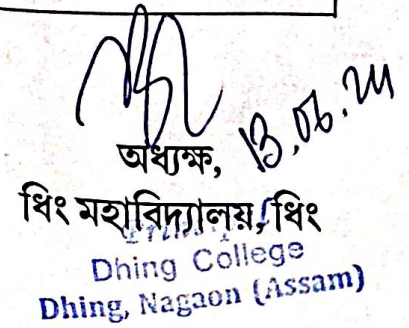 13.06.24
অধ্যক্ষ,
ধিং মহাবিদ্যালয়, ধিং
Dhing College
Dhing, Nagaon (Assam)